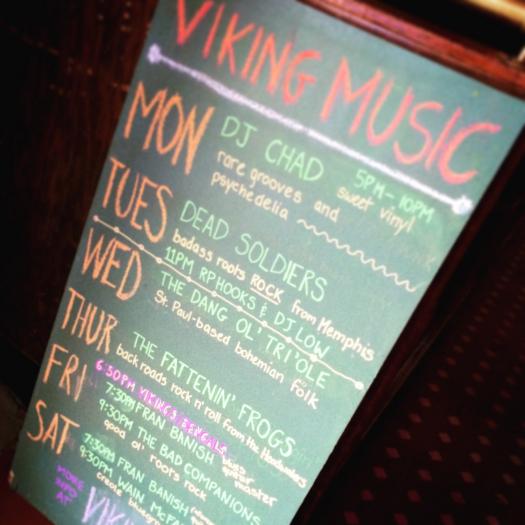 VIKING MUSIC
MON DJ CHAD 5PM-10PM
rare grooves and sweet vinyl
psychedelia
TUES DEAD SOLDIERS
badass roots ROCK from Memphis
11PM RP HOOKS & DJ LOW
WED THE DANG OL' TRI'OLE
St. Paul-based bohemian folk
THUR THE FATTENIN' FROGS
back roads rock n' roll from the
FRI 6:30PM VIKINGS BENGALS
7:30PM FRAN BANISH
master
9:30PM THE BAD COMPANIONS
good ol' roots rock
SAT 7:30PM FRAN BANISH
9:30PM WAIN McFA
MORE
INFO
AT